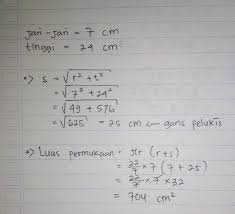 jari-jari = 7 cm
tinggi = 24 cm
•> s = √r² + t²
= √7² + 24²
= √49 + 576
= √625 = 25 cm ← garis pelukis
•> Luas permukaan = πr (r+s)
= 22/7 × 7 (7 + 25)
= 22/7 × 7 × 32
= 704 cm²